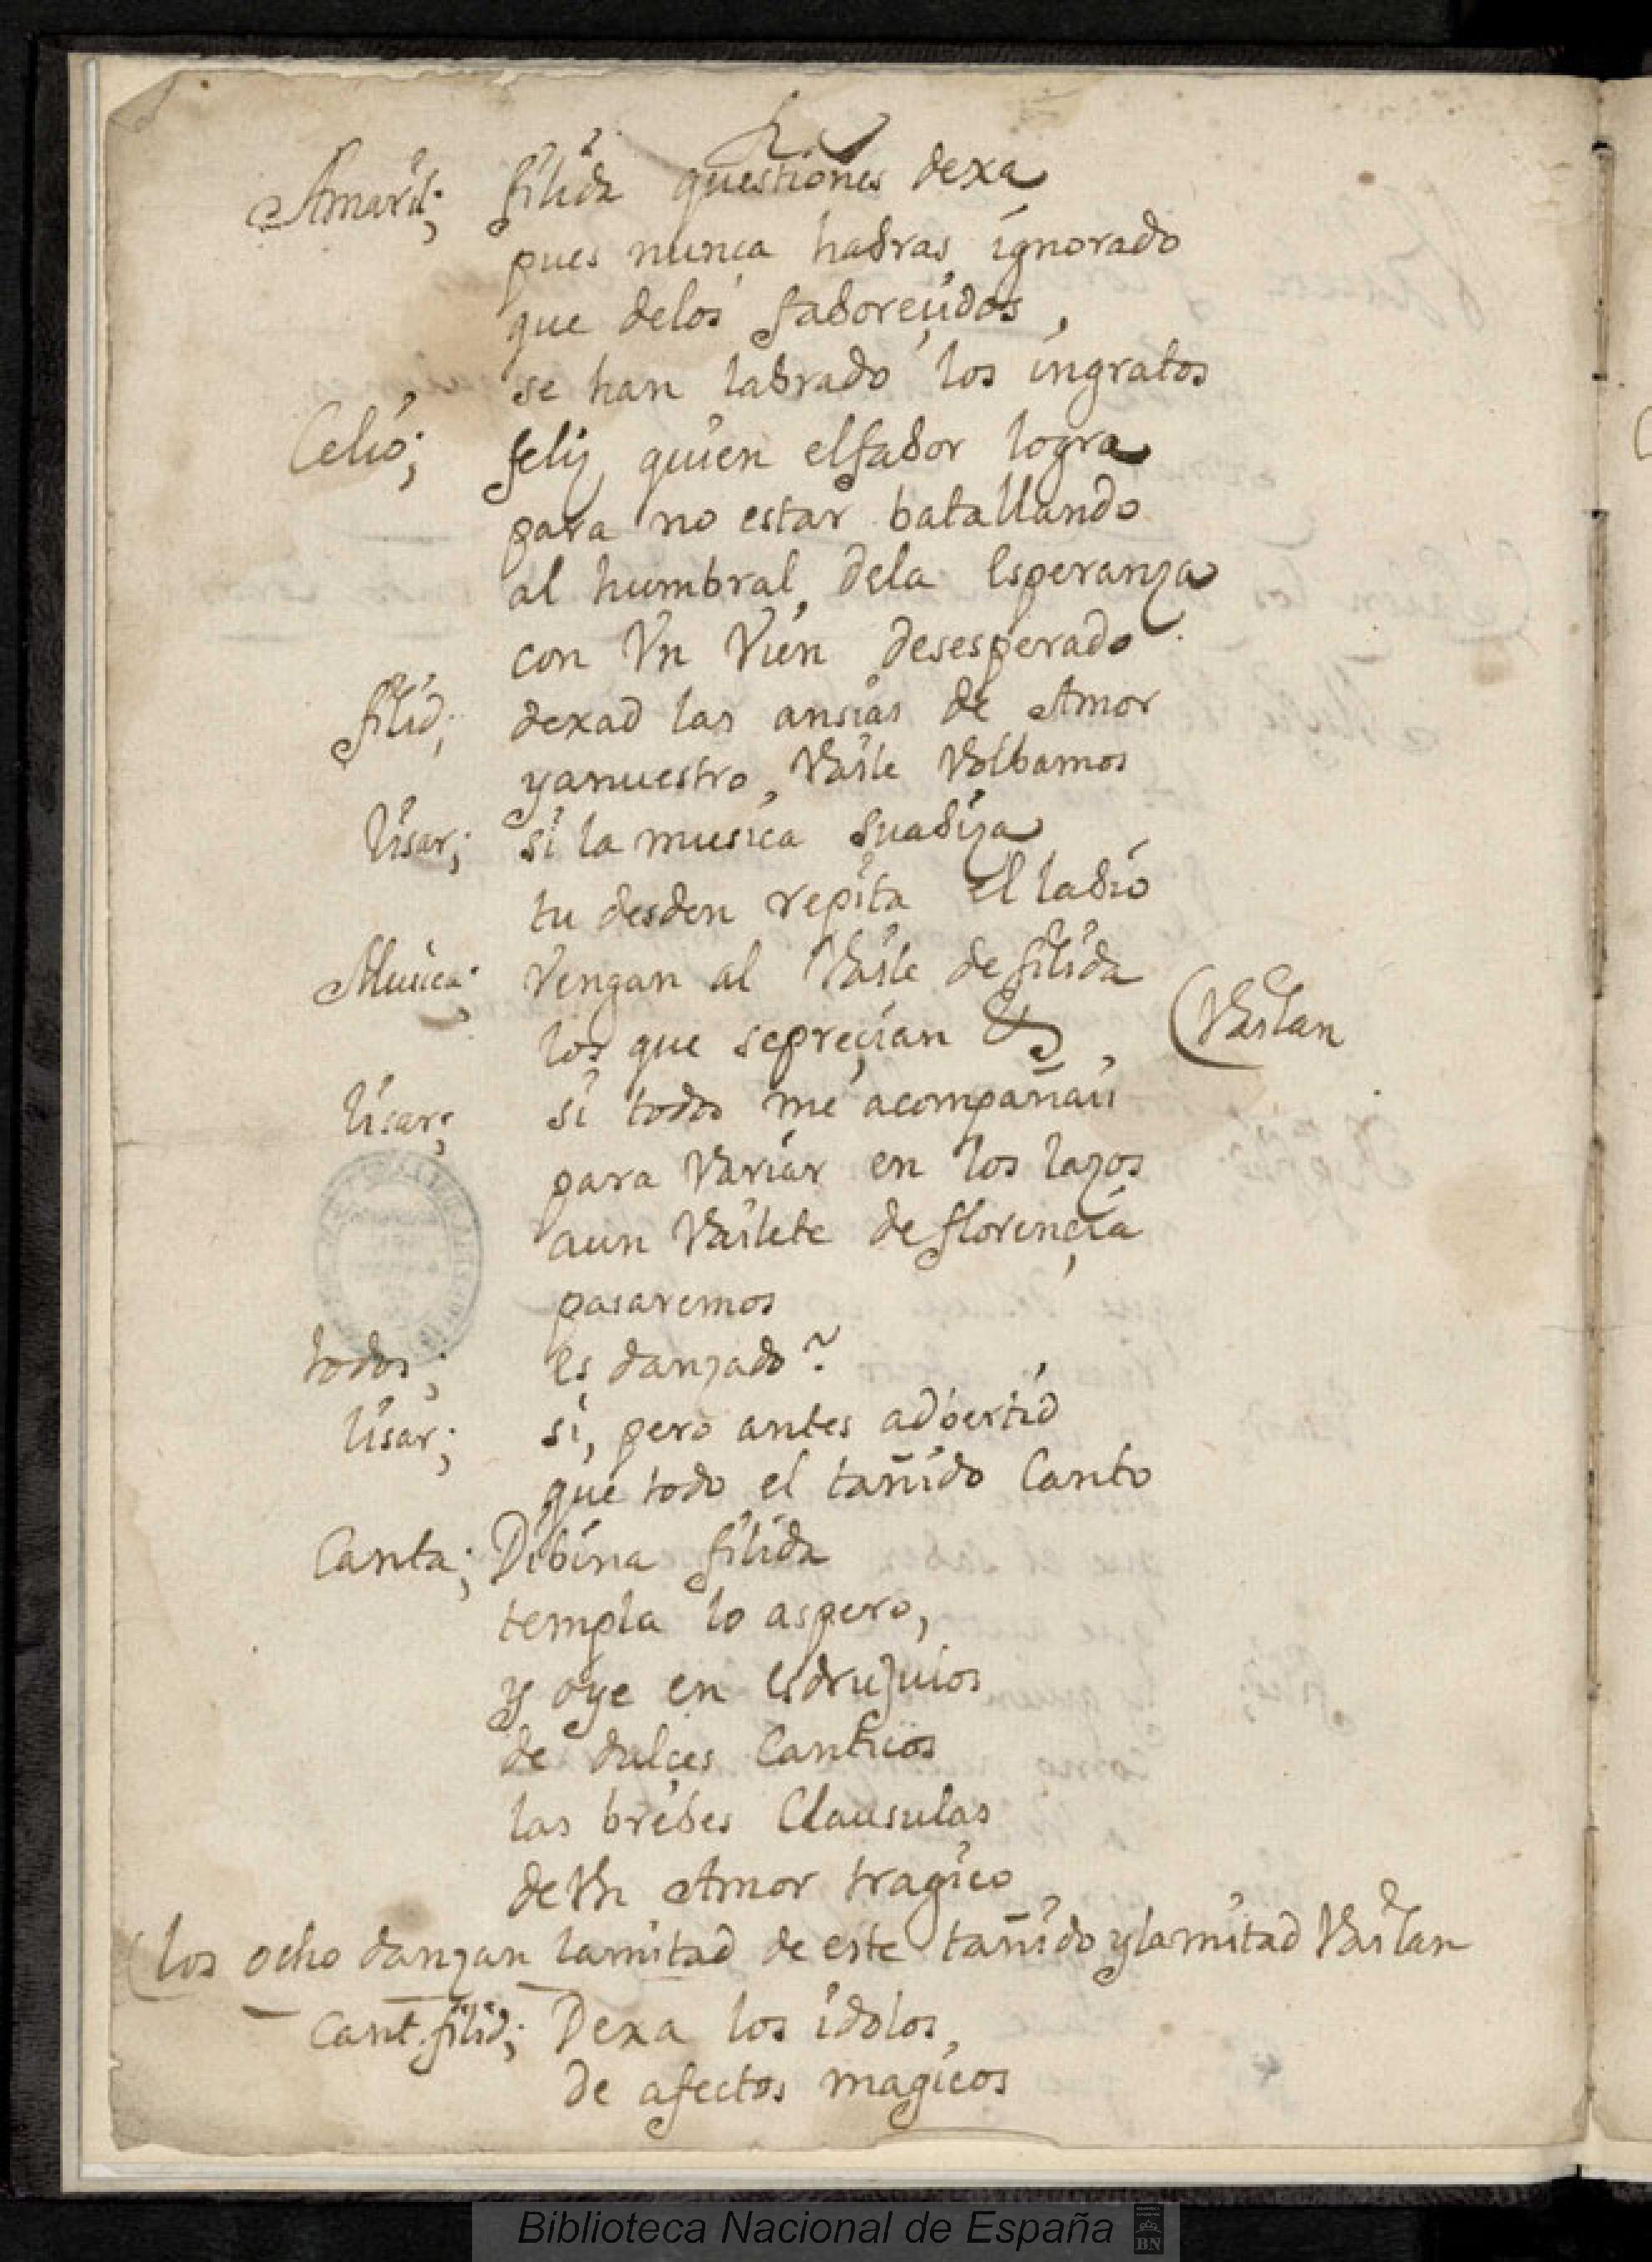 Amaril; filida questiones dexa
pues nunca habras ignorado
que delos faboreçidos,
se han labrado los ingratos
Celio; feliz quien elfabor logra
para no estar batallando
al humbral dela esperanza
con Vn Vien desesperado
filid; dexad las ansias de Amor
yanuestro Vaile Volbamos
lisar; si la musica suabiza
tu desden repita el labio
Musica; Vengan al Vaile de filida
los que sepreçian &
(Vailan
lisar; si todos me acompañais
para Variar en los lazos
aun Vailete de florençia
pasaremos
todos; es danzado?
lisar; si, pero antes adbertid
que todo el tañido Canto
Canta; Dibina filida
templa lo aspero,
y oye en esdrujulos
de dulces Canticos
las brebes Clausulas
deVn Amor tragico
(los ocho danzan lamitad de este tañido ylamitad Vailan
Cant. filid; Dexa los idolos,
de afectos magicos
Biblioteca Nacional de España
BN